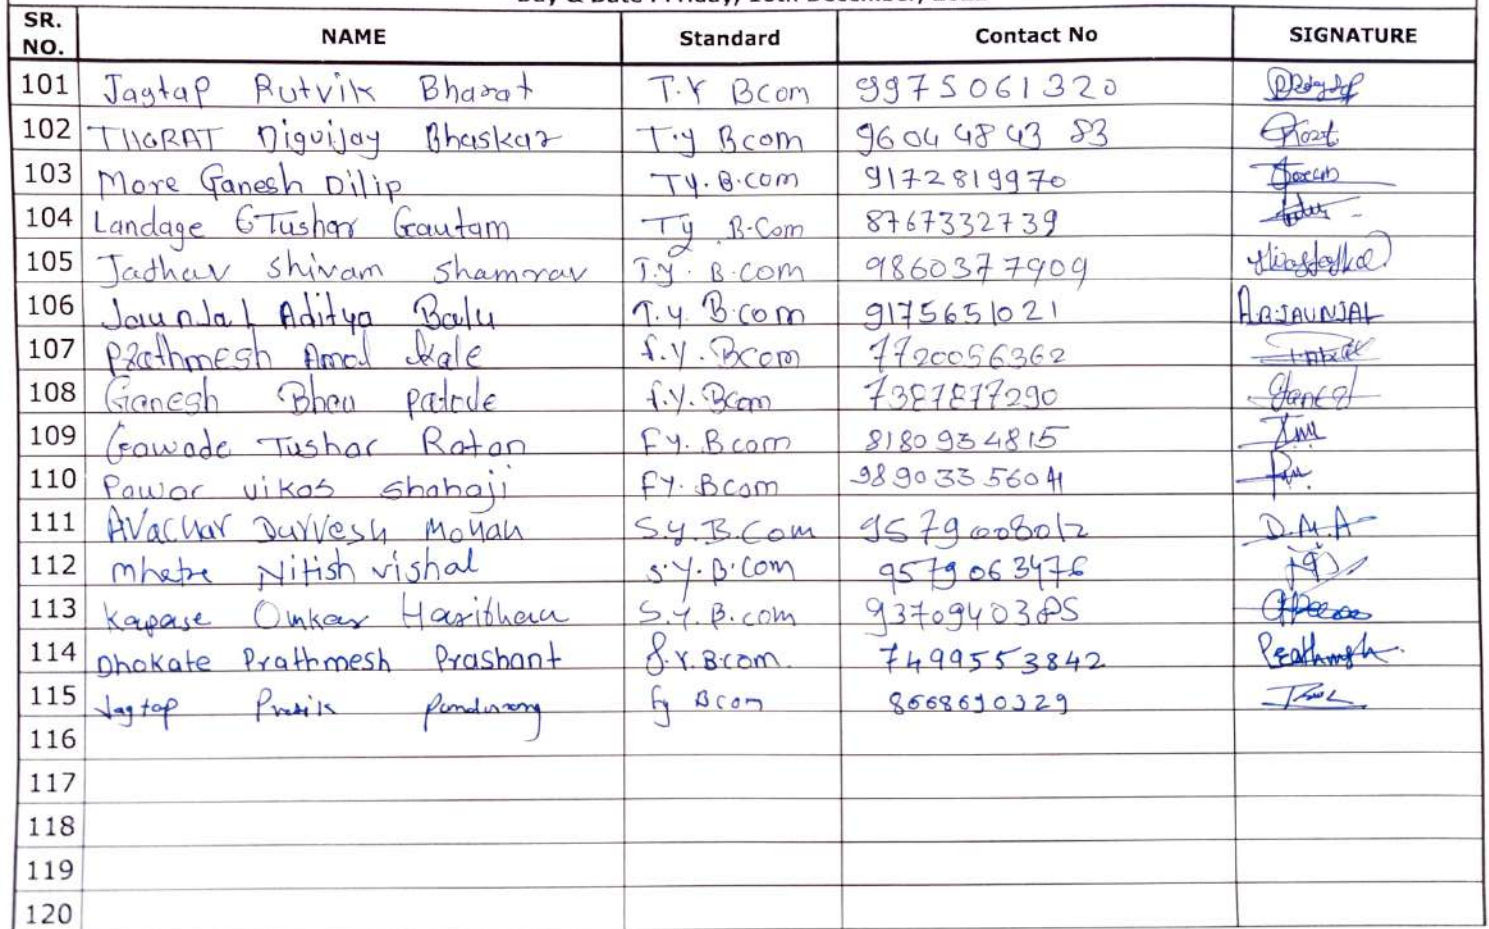 SR. NO. NAME Standard Contact No SIGNATURE
101 Jagtap Rutvik Bharat T.Y Bcom 9975061320
102 THORAT Diguijay Bhaskar T.y Bcom 9604484383
103 More Ganesh Dilip TY.B.com 9172819970
104 Landage Tushar Gautam Ty B.Com 8767332739
105 Jadhav shivam shamrav T.y. B.com 9860377909
106 Jaunjal Aditya Balu T.y. B.com 9175651021 A.B.JAUNJAL
107 Prathmesh Amol Kale f.y. Bcom 7720056362
108 Ganesh Bhau patode f.y. Bcom 7387877290
109 Gawade Tushar Ratan FY. Bcom 8180934815
110 Pawar vikas shahaji FY. Bcom
111 Avachar Durvesh Mohan S.y.B.Com 9579008012 D.M.A
112 mhetre Nitish vishal s.y.B.Com 9579063476
113 Kapase Omkar Haribhau S.y. B.com
114 Dhokate Prathmesh Prashant S.Y.B.com. 7499553842 Prathmesh
115 Jagtap Pandurang fy Bcom 8668690329
116
117
118
119
120